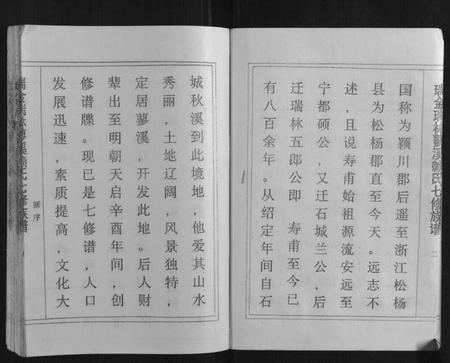 瑞金瑞林蓼溪赖氏七修族谱
二
国称为颍川郡后遥至浙江松杨
县为松杨郡直至今天。远志不
述，且说寿甫始祖源流安远至
宁都硕公，又迁石城兰公，后
迁瑞林五郎公即 寿甫至今已
有八百余年。从绍定年间自石
城秋溪到此境地，他爱其山水
秀丽，土地辽阔，风景独特，
定居蓼溪，开发此地。后人财
辈出至明朝天启辛酉年间，创
修谱牒。现已是七修谱，人口
发展迅速，素质提高，文化大
新序